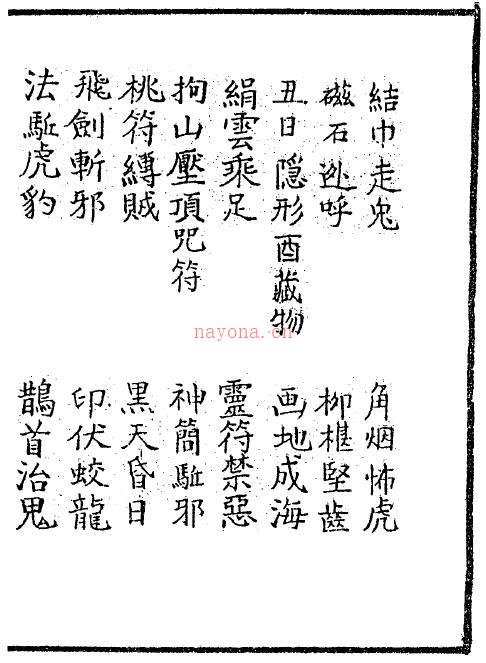 結巾走兔 角烟怖虎
磁石迯呼 柳椹堅齒
丑日隠形酉藏物 画地成海
絹雲乘足 靈符禁惡
拘山壓頂咒符 神簡駈邪
桃符縛賊 黒天昏日
飛劍斬邪 印伏蛟龍
法駈虎豹 鵲首治鬼
nayona.cn